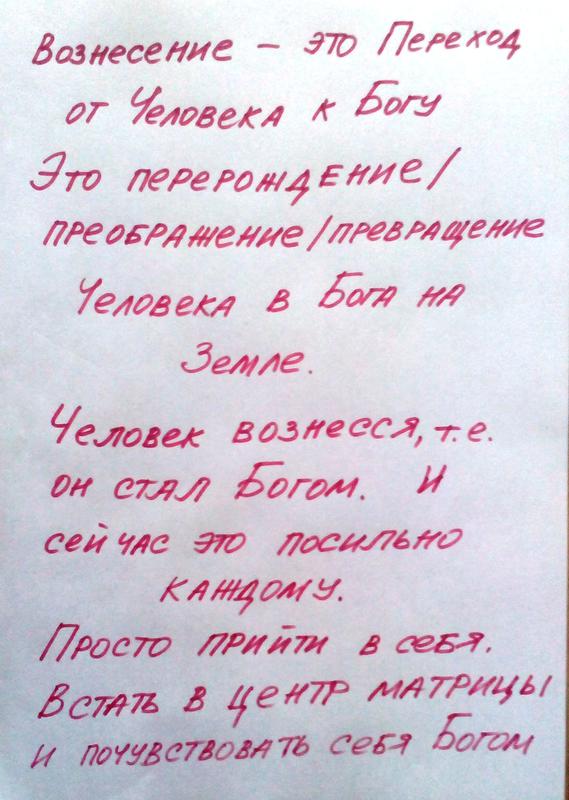 Вознесение – это Переход
от Человека к Богу
Это перерождение/
преображение/превращение
Человека в Бога на
Земле.
Человек вознесся, т.е.
он стал Богом. И
сейчас это посильно
каждому.
Просто прийти в себя.
Встать в центр матрицы
и почувствовать себя Богом